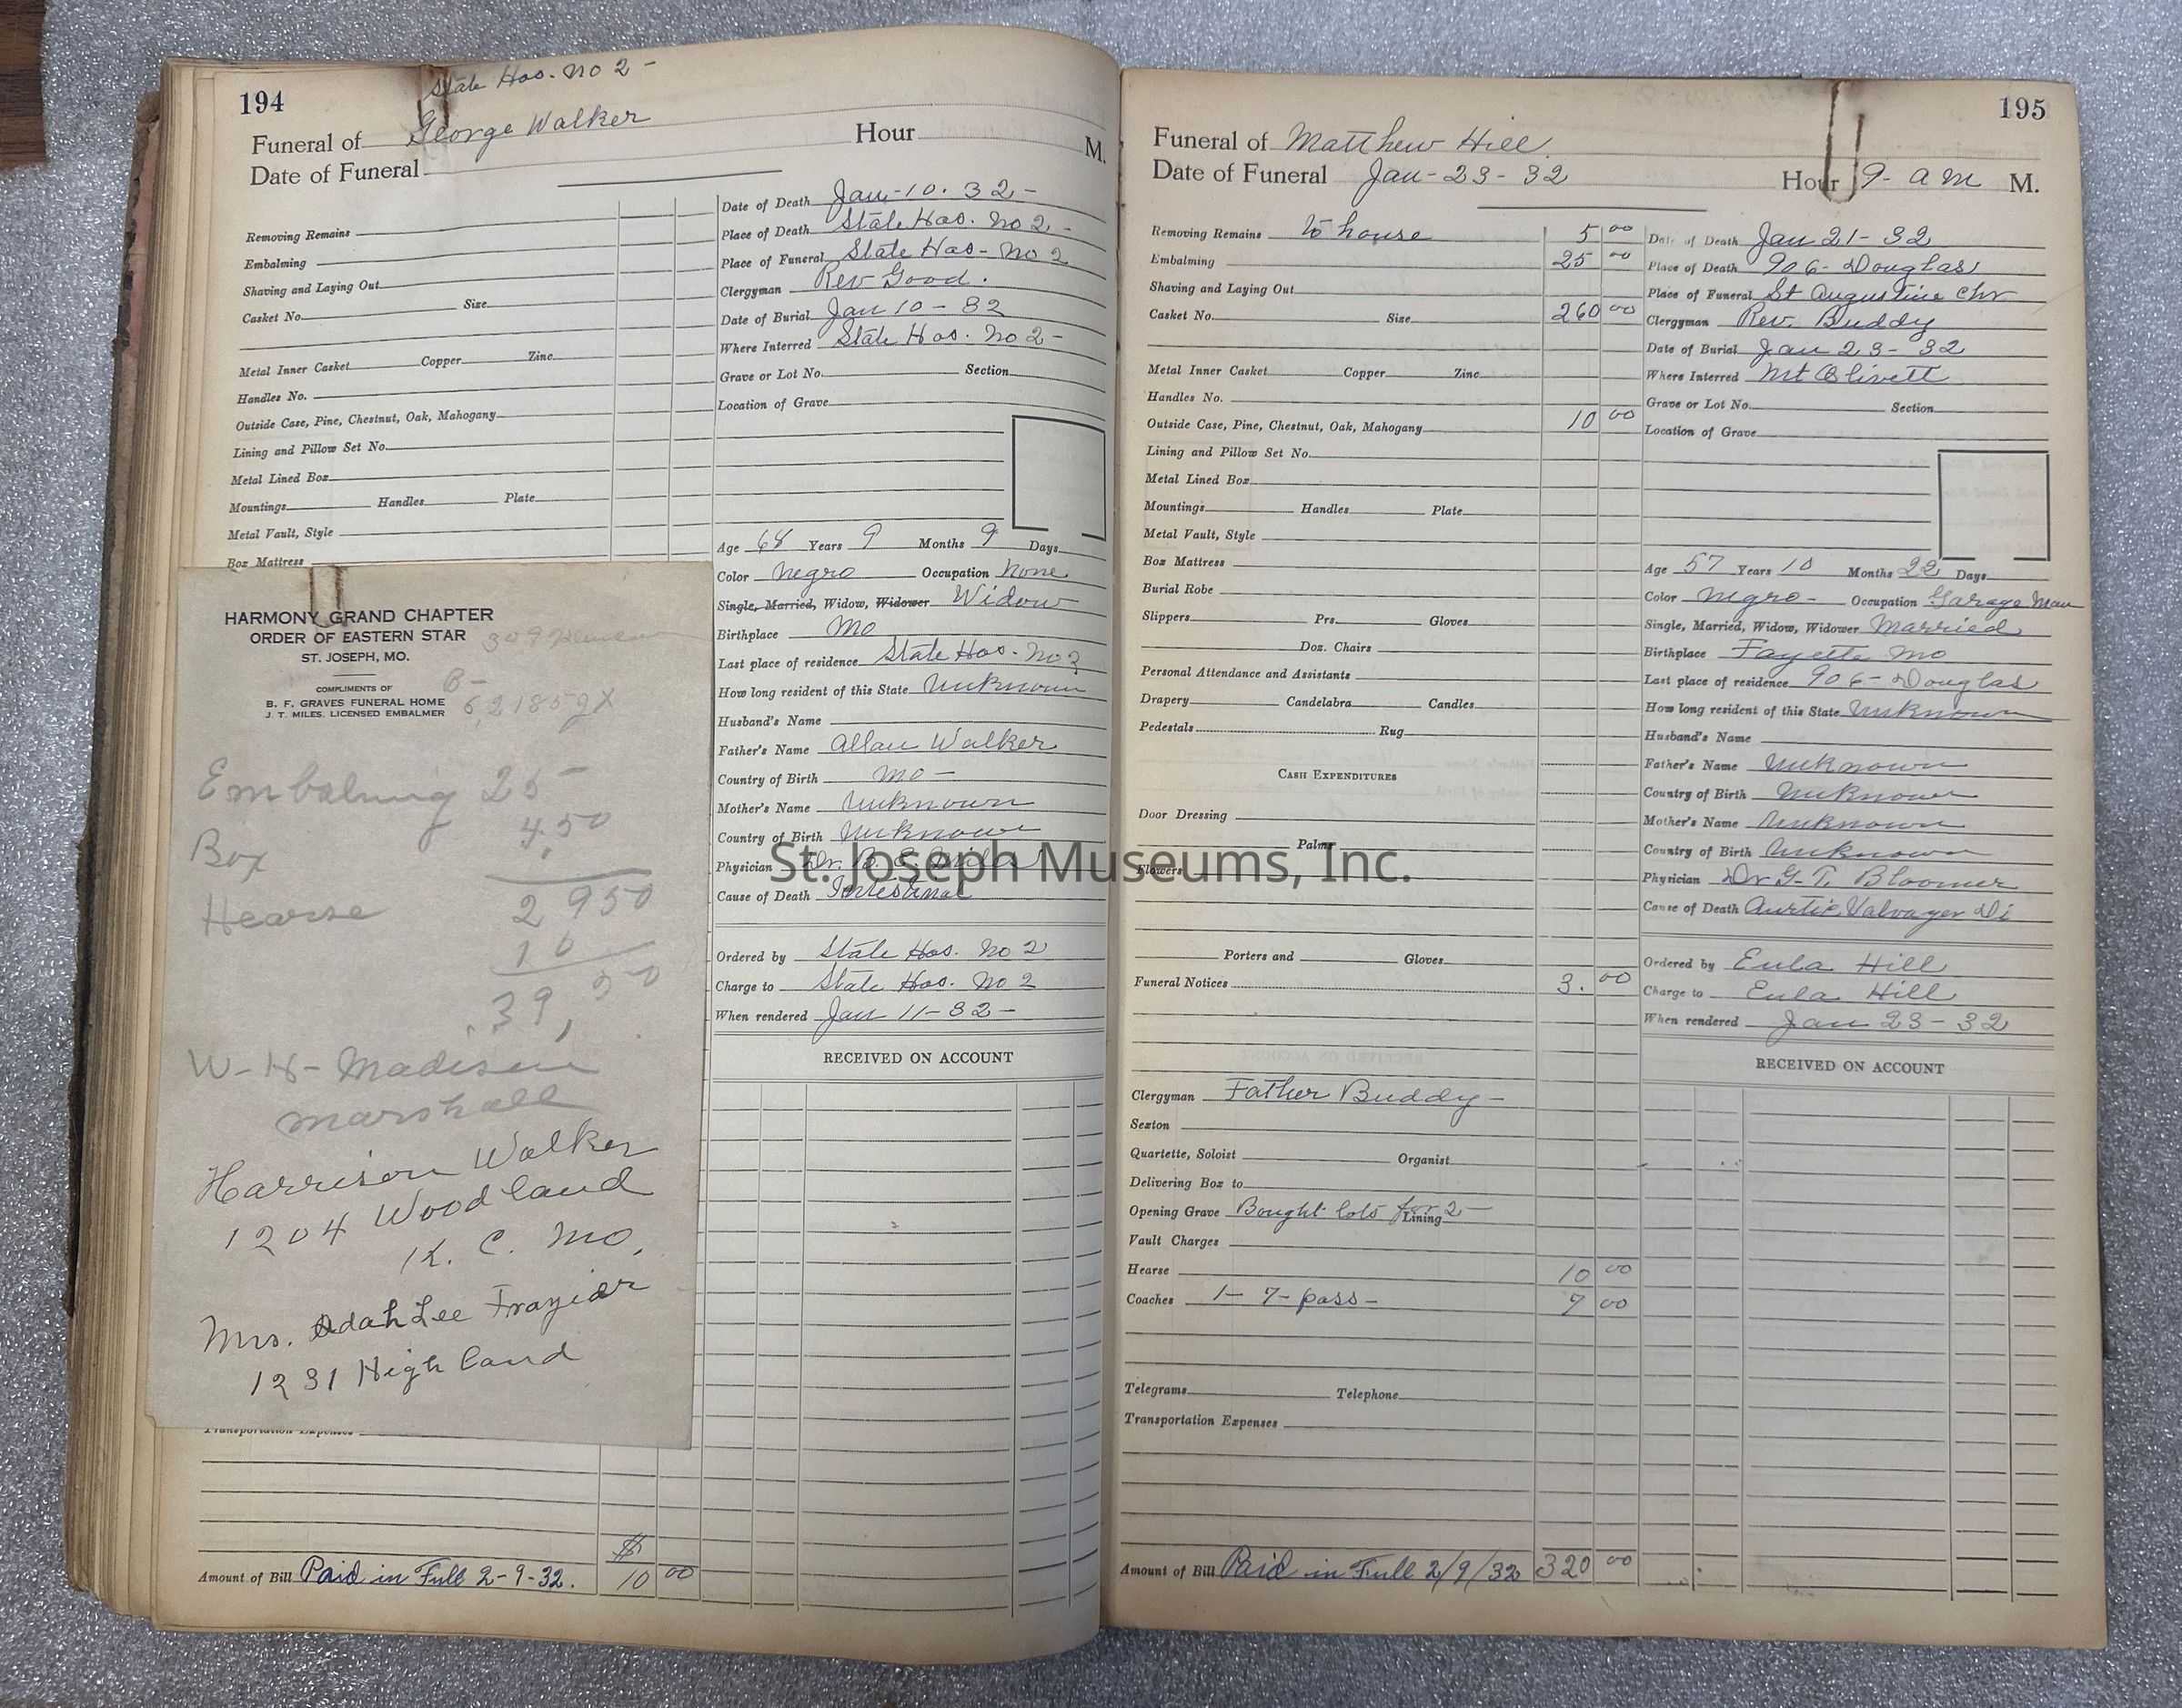 194
State Hos. No 2 -
Funeral of George Walker
Hour M.
Date of Funeral
Removing Remains
Embalming
Shaving and Laying Out
Casket No. Size
Metal Inner Casket Copper Zinc
Handles No.
Outside Case, Pine, Chestnut, Oak, Mahogany
Lining and Pillow Set No.
Metal Lined Box
Mountings Handles Plate
Metal Vault, Style
Box Mattress
HARMONY GRAND CHAPTER
ORDER OF EASTERN STAR
ST. JOSEPH, MO.
COMPLIMENTS OF
B. F. GRAVES FUNERAL HOME
J. T. MILES, LICENSED EMBALMER
Embalming 25 -
Box 4.50
Hearse 2950
10
39,50
W-H- Madison
marshall
Harrison Walker
1204 Woodland
K. C. Mo,
Mrs. Adah Lee Frazier
1231 Highland
Transportation Expenses
$
Amount of Bill Paid in Full 2-9-32. 10 00
Date of Death Jan-10-32-
Place of Death State Hos. No 2 -
Place of Funeral State Hos- No 2
Clergyman Rev Good.
Date of Burial Jan 10-32
Where Interred State Hos. No 2-
Grave or Lot No. Section
Location of Grave
Age 68 Years 9 Months 9 Days
Color Negro Occupation None
Single, Married, Widow, Widower Widow
Birthplace Mo
Last place of residence State Hos- No 2
How long resident of this State Unknown
Husband's Name
Father's Name Allan Walker
Country of Birth Mo -
Mother's Name Unknown
Country of Birth Unknown
Physician Dr. B. E. Miles
Cause of Death Intestinal
Ordered by State Hos. No 2
Charge to State Hos. No 2
When rendered Jan 11-32-
RECEIVED ON ACCOUNT
St. Joseph Museums, Inc.
195
Funeral of Matthew Hill
Date of Funeral Jan-23-32
Hour 9- a m M.
Removing Remains to house 5 00
Embalming 25 00
Shaving and Laying Out
Casket No. Size 260 00
Metal Inner Casket Copper Zinc
Handles No.
Outside Case, Pine, Chestnut, Oak, Mahogany 10 00
Lining and Pillow Set No.
Metal Lined Box
Mountings Handles Plate
Metal Vault, Style
Box Mattress
Burial Robe
Slippers Prs. Gloves
Doz. Chairs
Personal Attendance and Assistants
Drapery Candelabra Candles
Pedestals Rug
CASH EXPENDITURES
Door Dressing
Palms
Flowers
Porters and Gloves
Funeral Notices 3. 00
Clergyman Father Buddy -
Sexton
Quartette, Soloist Organist
Delivering Box to
Opening Grave Bought lots for 2- Lining
Vault Charges
Hearse 10 00
Coaches 1- 7- pass- 7 00
Telegrams Telephone
Transportation Expenses
Amount of Bill Paid in Full 2/9/32 320 00
Date of Death Jan 21-32
Place of Death 906- Douglas
Place of Funeral St Augustine Chr
Clergyman Rev. Buddy
Date of Burial Jan 23-32
Where Interred Mt Olivett
Grave or Lot No. Section
Location of Grave
Age 57 Years 10 Months 22 Days
Color Negro- Occupation Garage Man
Single, Married, Widow, Widower Married
Birthplace Fayette Mo
Last place of residence 906- Douglas
How long resident of this State Unknown
Husband's Name
Father's Name Unknown
Country of Birth Unknown
Mother's Name Unknown
Country of Birth Unknown
Physician Dr G. T. Bloomer
Cause of Death Di
Ordered by Eula Hill
Charge to Eula Hill
When rendered Jan 23-32
RECEIVED ON ACCOUNT